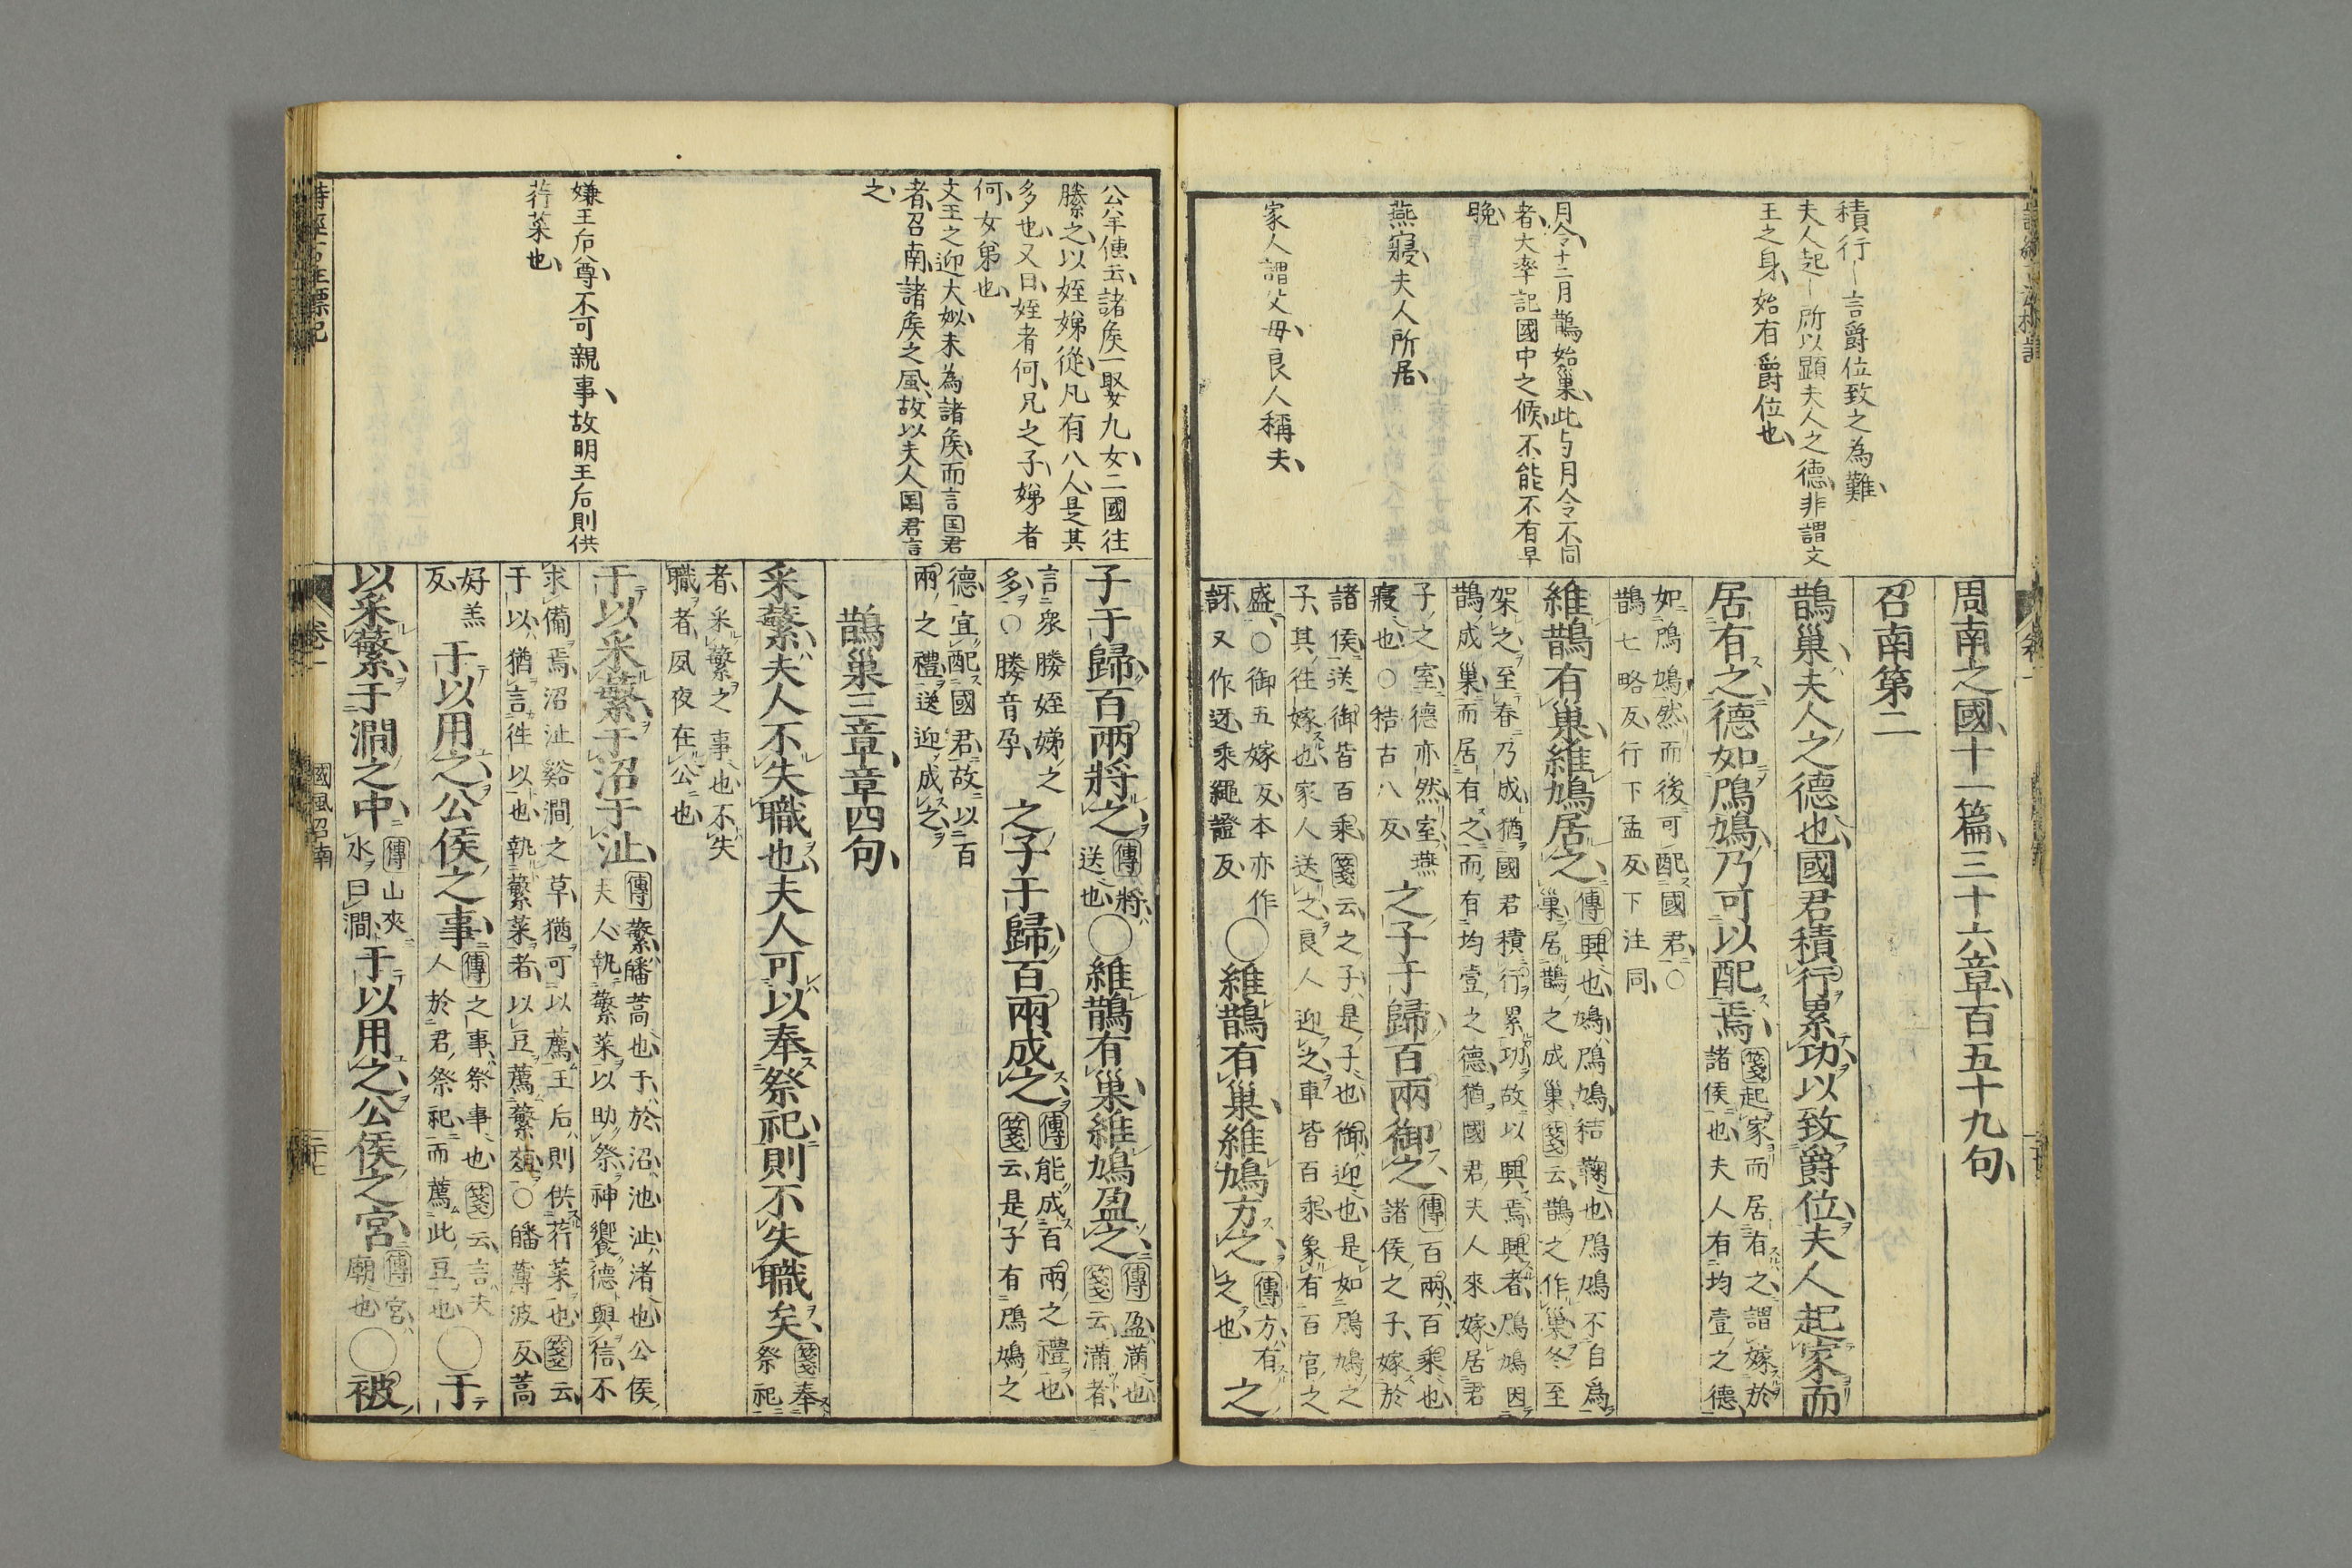 積行｜言爵位致之為難、
夫人起｜所以顕夫人之德、非謂文
王之身、始有爵位也、
月令十二月鵲始巢、此与月令不同
者、大率記國中之候、不能不有早
晚、
燕寢、夫人所居、
家人謂父母、良人稱夫、
周南之國、十一篇、三十六章、百五十九句、
召南第二
鵲巢、夫人之德也、國君積行累功、以致爵位、夫人起家而
居有之、德如鳲鳩、乃可以配焉、
箋起家而居有之、謂嫁於
諸侯也、夫人有均壹之德、
如鳲鳩然、而後可配國君、○
鵲七略反、行下孟反、下注同、
維鵲有巢、維鳩居之、
傳興也、鳩、鳲鳩、秸鞠也、鳲鳩不自爲
巢、居鵲之成巢、箋云、鵲之作巢、冬至
架之、至春乃成、猶國君積行累功、故以興焉、興者、鳲鳩因
鵲成巢而居有之、而有均壹之德、猶國君夫人來嫁、居君
子之室、德亦然、室、燕
寢也、○秸古八反、
之子于歸、百兩御之、
傳百兩、百乘也、
諸侯之子、嫁於
諸侯、送御皆百乘、箋云、之子、是子也、御、迎也、是如鳲鳩之
子、其往嫁也、家人送之、良人迎之、車皆百乘、象有百官之
盛、○御五嫁反、本亦作
訝、又作迓、乘繩證反、
○維鵲有巢、維鳩方之、
傳方、有
之也、
之
公羊傳云、諸侯一娶九女、二國往
媵之、以姪娣從、凡有八人、是其
多也、又曰、姪者何、兄之子、娣者
何、女弟也、
文王之迎大姒、未為諸侯、而言国君
者、召南諸侯之風、故以夫人国君言
之、
嫌王后尊、不可親事、故明王后則供
荇菜也、
子于歸、百兩將之、
傳將、
送也、
○維鵲有巢、維鳩盈之、
傳盈、滿也、
箋云、滿者、
言衆媵姪娣之
多、○媵音孕、
之子于歸、百兩成之、
傳能成百兩之禮也、
箋云、是子有鳲鳩之
德、宜配國君、故以百
兩之禮、送迎成之、
鵲巢三章、章四句、
采蘩、夫人不失職也、夫人可以奉祭祀、則不失職矣、
箋奉
祭祀
者、采蘩之事也、不失
職者、夙夜在公也、
于以采蘩、于沼于沚、
傳蘩、皤蒿也、于、於、沼、池、沚、渚也、公侯
夫人、執蘩菜以助祭、神饗德與信、不
求備焉、沼沚谿澗之草、猶可以薦、王后則供荇菜也、箋云、
于以、猶言往以也、執蘩菜者、以豆薦蘩葅、○皤薄波反、蒿
好羔
反、
于以用之、公侯之事、
傳之事、祭事也、箋云、言夫
人於君祭祀、而薦此豆也、
○于
以采蘩、于澗之中、
傳山夾
水曰澗、
于以用之、公侯之宮、
傳宮、
廟也、
○被
卷一
國風召南
二十七